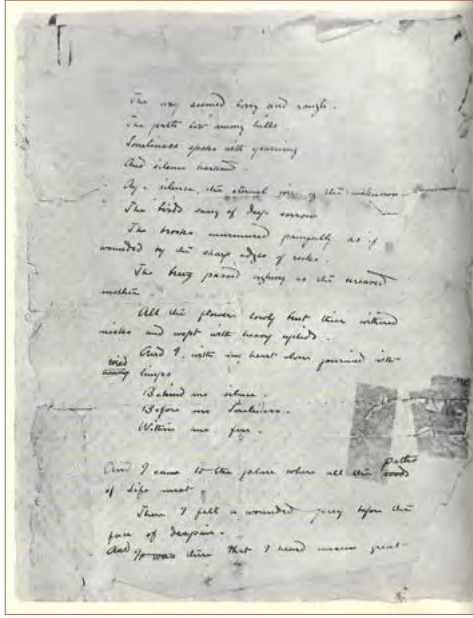 The way seemed long and rough.
The paths lost among hills
Loneliness spoke with yearning
And silence
Ay - silence, the eternal of the unknown
The birds sang of deep sorrow
The brooks murmured painfully as if
wounded by the sharp edges of rocks.
The passed sighing as the bereaved
mother.
All the flowers lowly bent their withered
necks and wept with heavy eyelids.
And I, with my heart alone journied with
tired
limps
Behind me silence.
Before me loneliness.
Within me fire.
And I came to the place where all the paths
of Life meet
There I fell a wounded prey before the
face of despair.
And it was there that I heard great